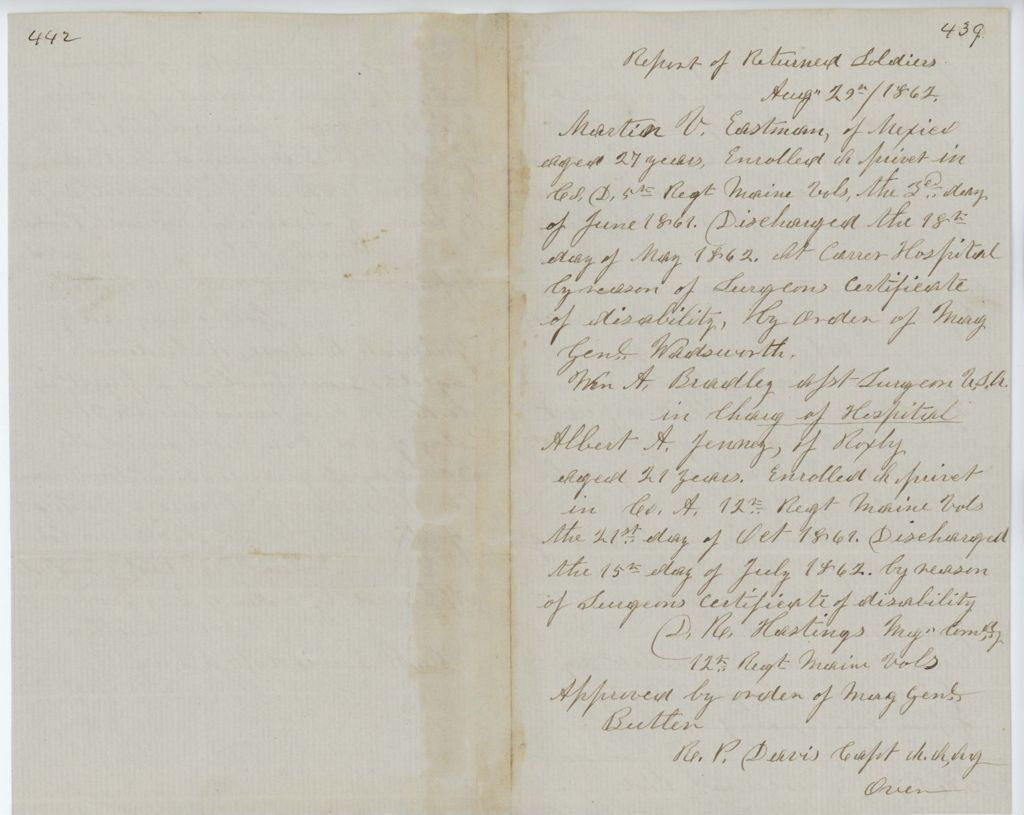 442
439
Report of Returned Soldiers
Aug" 29th/1862.
Martin V. Eastman, of Mexico
aged 27 years, Enrolled a privet in
Co. D. 5th Regt Maine Vols, the 3d day
of June 1861. Discharged the 18th
day of May 1862. At Carver Hospital
by reason of Surgeons Certificate
of disability, by Order of Mag
Genl Wadsworth.
Wm A. Bradley asst Surgeon U.S.A.
in Charg of Hospital
Albert A. Jenney, of Roxby
aged 21 years. Enrolled a privet
in Co. A. 12th Regt Maine Vols
the 21st day of Oct 1861. Discharged
the 15th day of July 1862. by reason
of Surgeons Certificate of disability
D. R. Hastings Mg" Comdg
12th Regt Maine Vols
Approved by order of Mag Genl
Butler
R. P. Davis Capt A. A, Ag
Over